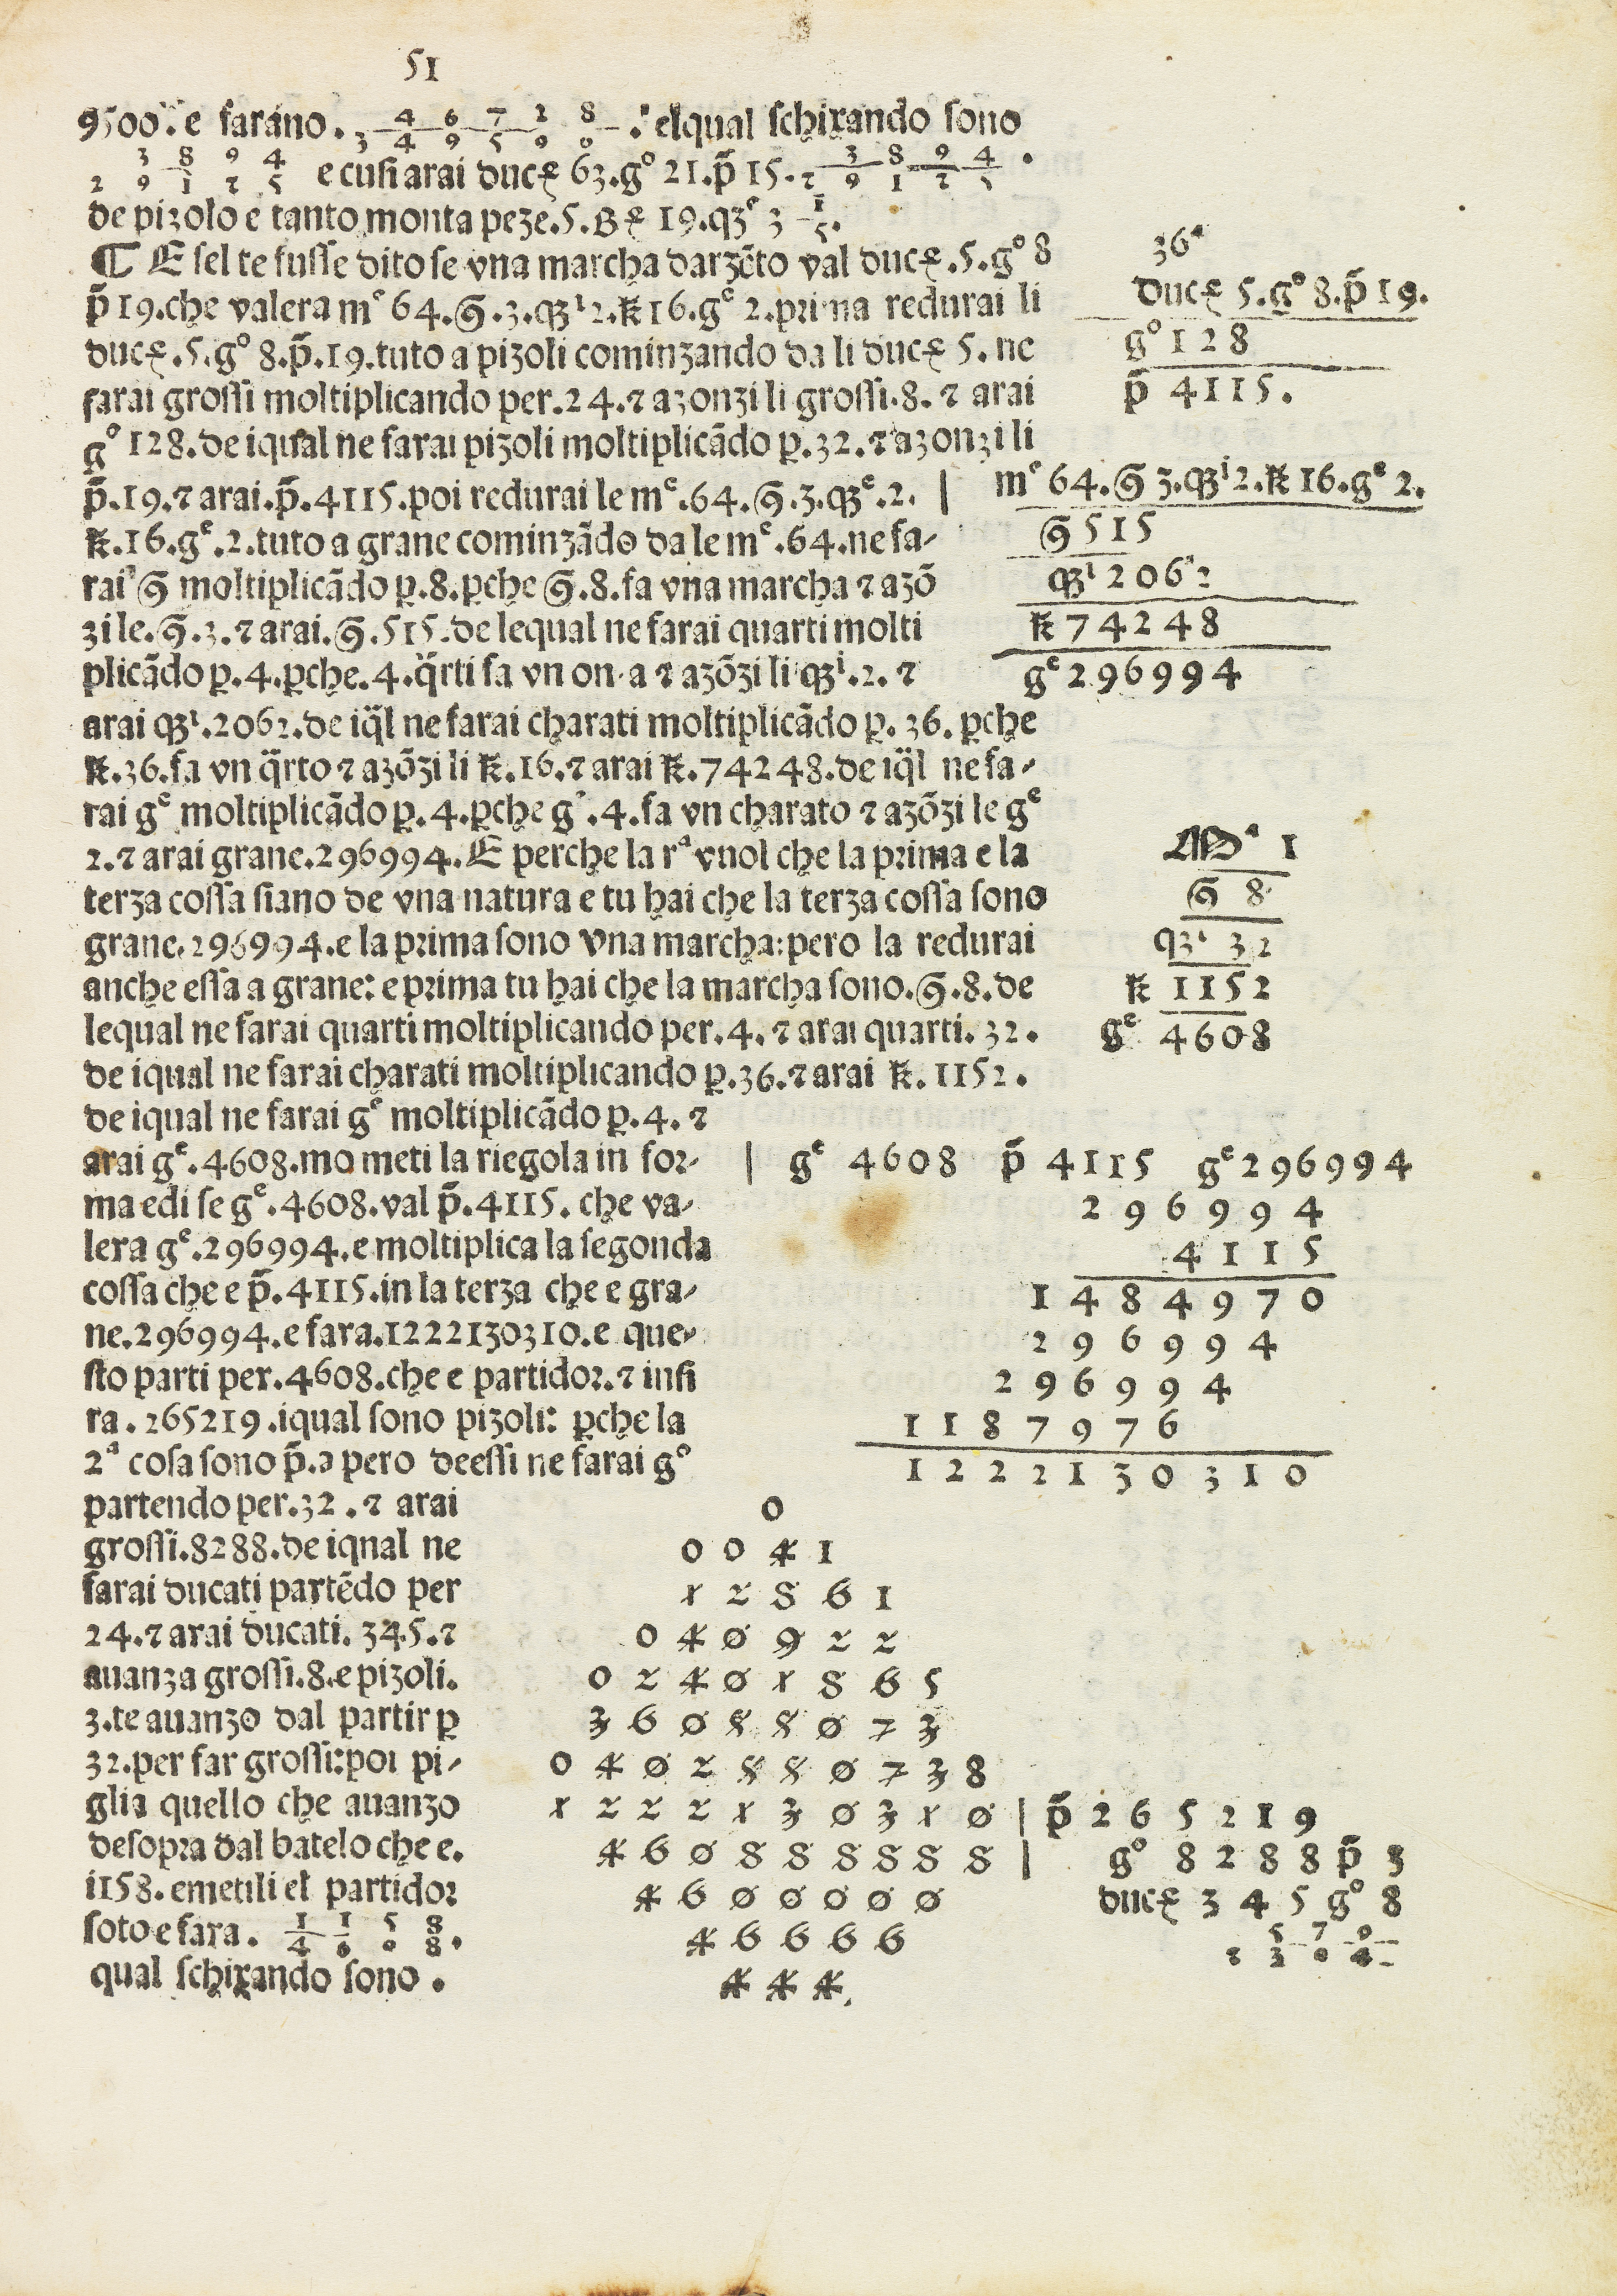 51
9500. e farano. 3 4 6 7 2 8 / 3 4 9 5 9 0 . elqual schixando sono
3 8 9 4 / 2 9 1 2 5 e cusi arai ducꝭ 63. gº 21. p̃ 15. 3 8 9 4 / 2 9 1 2 5 .
de pizolo e tanto monta peze. 5. Bꝭ 19. qʒᵉ 3 1/5.
¶ E sel te fusse dito se vna marcha darzẽto val ducꝭ. 5. gº 8
p̃ 19. che valera mᵉ 64. . 3. qʒⁱ 2. k 16. gᵉ 2. prima redurai li
ducꝭ. 5. gº 8. p̃. 19. tuto a pizoli cominzando da li ducꝭ 5. ne
farai grossi moltiplicando per. 24. ⁊ azonzi li grossi. 8. ⁊ arai
gº 128. de iqual ne farai pizoli moltiplicãdo ꝑ. 32. ⁊ azonzi li
p̃. 19. ⁊ arai. p̃. 4115. poi redurai le mᵉ. 64. . 3. qʒᵉ. 2.
k. 16. gᵉ. 2. tuto a grane cominzãdo da le mᵉ. 64. ne fa-
rai moltiplicãdo ꝑ. 8. ꝑche . 8. fa vna marcha ⁊ azõ
zi le. . 3. ⁊ arai. . 515. de lequal ne farai quarti molti
plicãdo ꝑ. 4. ꝑche. 4. q̈rti fa vn on a ⁊ azõzi li qʒⁱ. 2. ⁊
arai qʒⁱ. 2062. de iq̈l ne farai charati moltiplicãdo ꝑ. 36. ꝑche
k. 36. fa vn q̈rto ⁊ azõzi li k. 16. ⁊ arai k. 74248. de iq̈l ne fa-
rai gᵉ moltiplicãdo ꝑ. 4. ꝑche gᵉ. 4. fa vn charato ⁊ azõzi le gᵉ
2. ⁊ arai grane. 296994. E perche la rª vuol che la prima e la
terza cossa siano de vna natura e tu hai che la terza cossa sono
grane. 296994. e la prima sono vna marcha: pero la redurai
anche essa a grane: e prima tu hai che la marcha sono. . 8. de
lequal ne farai quarti moltiplicando per. 4. ⁊ arai quarti. 32.
de iqual ne farai charati moltiplicando ꝑ. 36. ⁊ arai k. 1152.
de iqual ne farai gᵉ moltiplicãdo ꝑ. 4. ⁊
arai gᵉ. 4608. mo meti la riegola in for-
ma e di se gᵉ. 4608. val p̃. 4115. che va-
lera gᵉ. 296994. e moltiplica la segonda
cossa che e p̃. 4115. in la terza che e gra-
ne. 296994. e fara. 1222130310. e que-
sto parti per. 4608. che e partidor. ⁊ insi
ra. 265219. iqual sono pizoli: ꝑche la
2ª cosa sono p̃. pero deessi ne farai gº
partendo per. 32. ⁊ arai
grossi. 8288. de iqnal ne
farai ducati partẽdo per
24. ⁊ arai ducati. 345. ⁊
auanza grossi. 8. e pizoli.
3. te auanzo dal partir ꝑ
32. per far grossi: poi pi-
glia quello che auanzo
desopra dal batelo che e.
1158. emetili el partidor
soto e fara. 1 1 5 8 / 4 6 0 8.
qual schixando sono.
36ª
ducꝭ 5. gº 8. p̃ 19.
gº 128
p̃ 4115.
mᵉ 64. 3. qʒⁱ 2. k 16. gᵉ 2.
515
qʒⁱ 2062
k 74248
gᵉ 296994
Mª 1
8
qʒⁱ 32
k 1152
gᵉ 4608
gᵉ 4608 p̃ 4115 gᵉ 296994
296994
4115
1484970
296994
296994
1187976
1222130310
0
0 0 4 1
1 2 8 6 1
0 4 0 9 2 2
0 2 4 0 1 8 6 5
3 6 0 8 8 0 7 3
0 4 0 2 8 8 0 7 3 8
1 2 2 2 1 3 0 3 1 0 | p̃ 2 6 5 2 1 9
4 6 0 8 8 8 8 8 8 | gº 8 2 8 8 p̃ 3
4 6 0 0 0 0 0 ducꝭ 3 4 5 gº 8
4 6 6 6 6 5 7 9 / 2 3 0 4
4 4 4